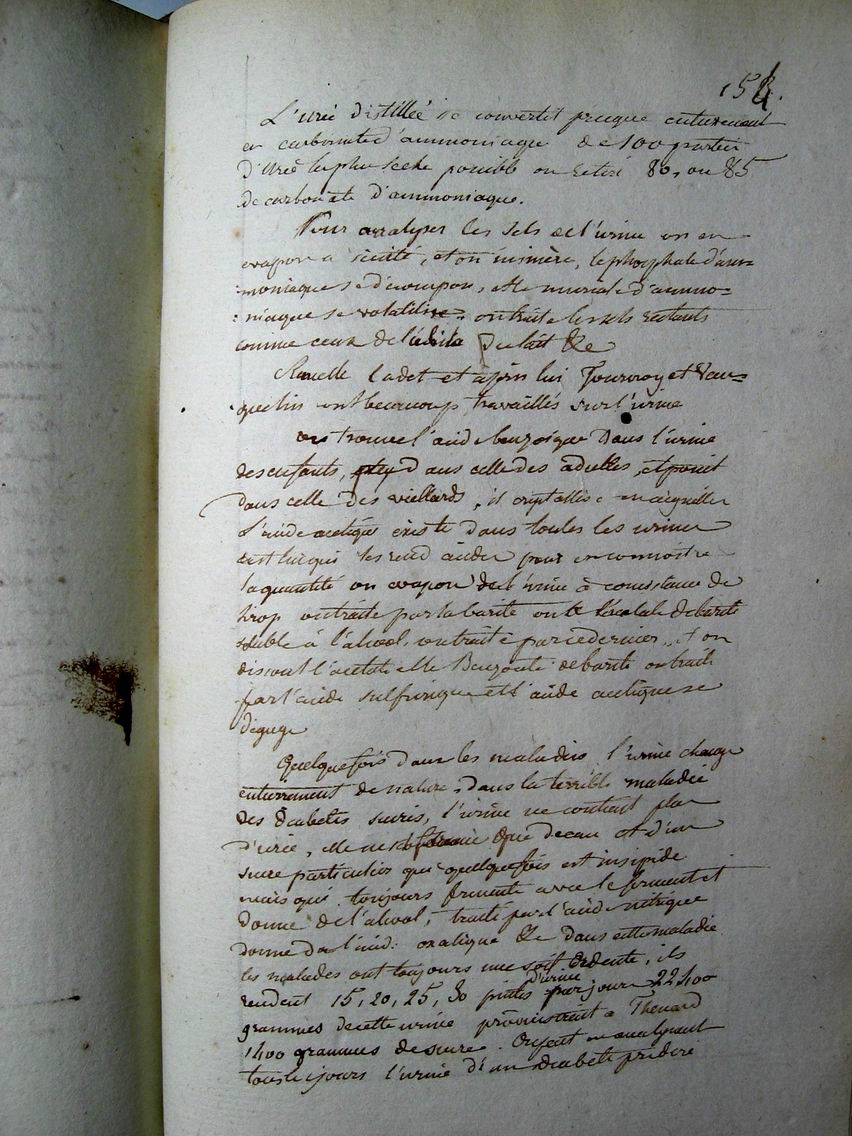 154.
L'urée distillée se convertit presque entierement
en carbonate d'ammoniaque de 100 parties
d'Urée la plus seche possible on retire 80, ou 85
de carbonate d'ammoniaque.
Pour analyser les sels de l'urine on en
evapore a siccité, et on incinère, le phosphate d'am=
=moniaque se decompose, et le muriate d'ammo=
=niaque se volatilise, on traite les sels restants
comme ceux de du lait &c
Rouelle Cadet et après lui Fourcroy et Vau=
quelin ont beaucoup travaillés sur l'urine
on trouve l'acide benzoique Dans l'urine
des enfants, peu dans celle des adultes, et point
Dans celle des viellards, il crystallise en aiguilles
L'acide acetique existe dans toutes les urines
c'est lui qui les rend acides pour en connoitre
la quantité on evapore de l'urine à consistance de
sirop on traite par la barite on a l'acetate de barite
soluble à l'alcool, on traite par ce dernier, et on
dissout l'acetate et le Benzoate de barite on traite
par l'acide sulfurique et l'acide acetique se
degage
Quelquefois dans les maladies l'urine change
entierement de nature, Dans la terrible maladie
des diabetes sucrés, l'urine ne contient plus
d'urée, elle n'est formée que d'eau et d'un
sucre particulier qui quelquefois est insipide
mais qui toujours fermente avec le ferment et
Donne de l'alcool, traité par l'acide nitrique
donne de l'acid: oxalique &c Dans cette maladie
les malades ont toujours une soif ardente, ils
rendent 15, 20, 25, 30 pintes d'urine par jour 22400
grammes de cette urine a Thenard
1400 grammes de sucre. en analysant
tous les jours l'urine d'un diabete